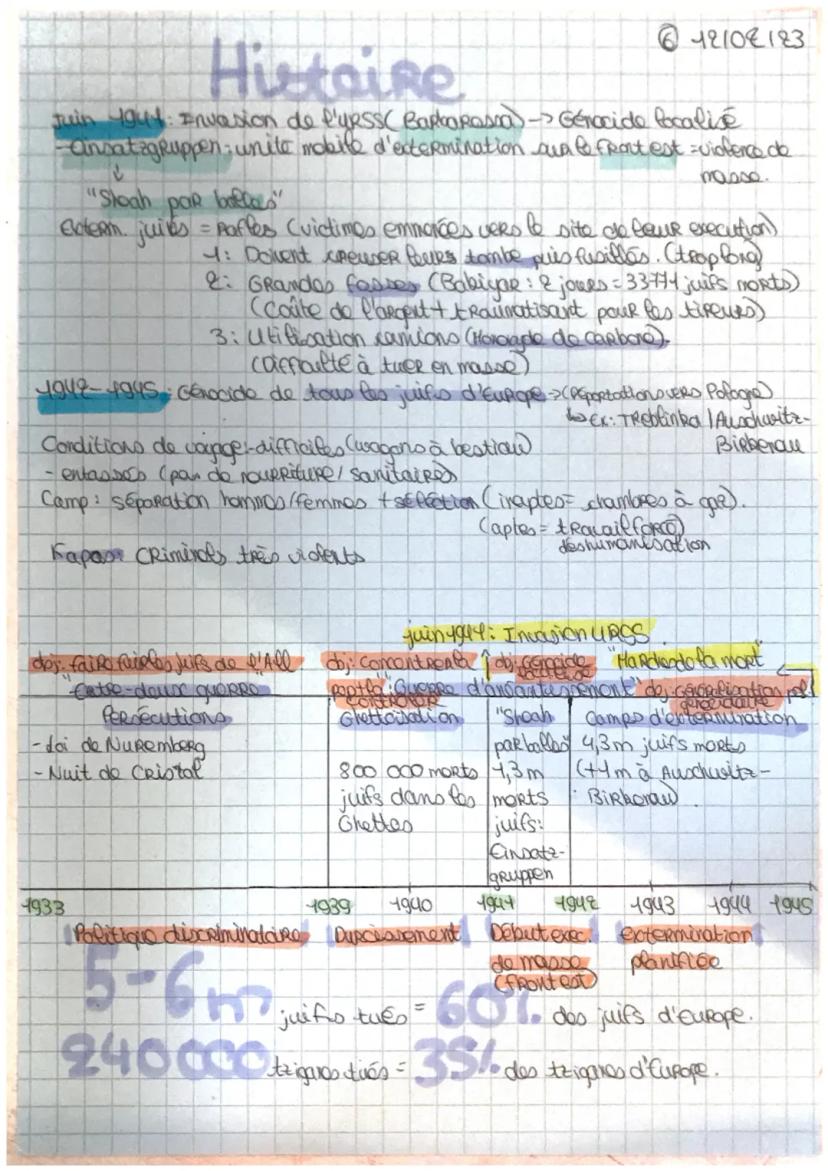 ⑥ 12/02/23
Histoire
Juin 1941: Invasion de l'URSS (Barbarossa) -> Génocide localisé
-Einsatzgruppen = unité mobile d'extermination sur le front est = violence de
masse.
↓
"Shoah par balles"
Exterm. juifs = Rafles (victimes emmenées vers le site de leur execution)
1: Doivent creuser leurs tombe puis fusillés. (trop long)
2: Grandes fosses (Babiyar: 2 jours = 33771 juifs morts)
(coûte de l'argent + traumatisant pour les tireurs)
3: Utilisation camions (Monoxyde de carbone).
(Difficulté à tuer en masse)
1942-1945: Génocide de tous les juifs d'Europe -> (Déportations vers Pologne)
↳ Ex: Treblinka / Auschwitz-
Birkenau
Conditions de voyage: - difficiles (wagons à bestiau)
- entassés (pas de nourriture / sanitaires)
Camp: séparation hommes/femmes + sélection (inaptes = chambres à gaz).
(aptes = travail forcé)
déshumanisation
Kapos: Criminels très violents
juin 1941: Invasion URSS
obj: faire fuir les juifs de l'All
obj: Concentrer la
pop + la
contrôler
obj: Génocide
"Marche de la mort"
"Entre-deux guerre"
"Guerre d'anéantissement"
obj: Généralisation pol
génocidaire
Persécutions
- Loi de Nuremberg
- Nuit de Cristal
Ghettoïsation
800 000 morts
juifs dans les
Ghettos
"Shoah
par balles"
1,3m
morts
juifs:
Einsatz-
gruppen
Camps d'extermination
4,3m juifs morts
(+1m à Auschwitz-
Birkenau)
1933 1939 1940 1941 1942 1943 1944 1945
Politique discriminatoire Durcissement Début exec. extermination
de masse planifiée
(Front est)
5-6m juifs tués = 60% des juifs d'Europe.
240000 tziganes tués = 35% des tziganes d'Europe.